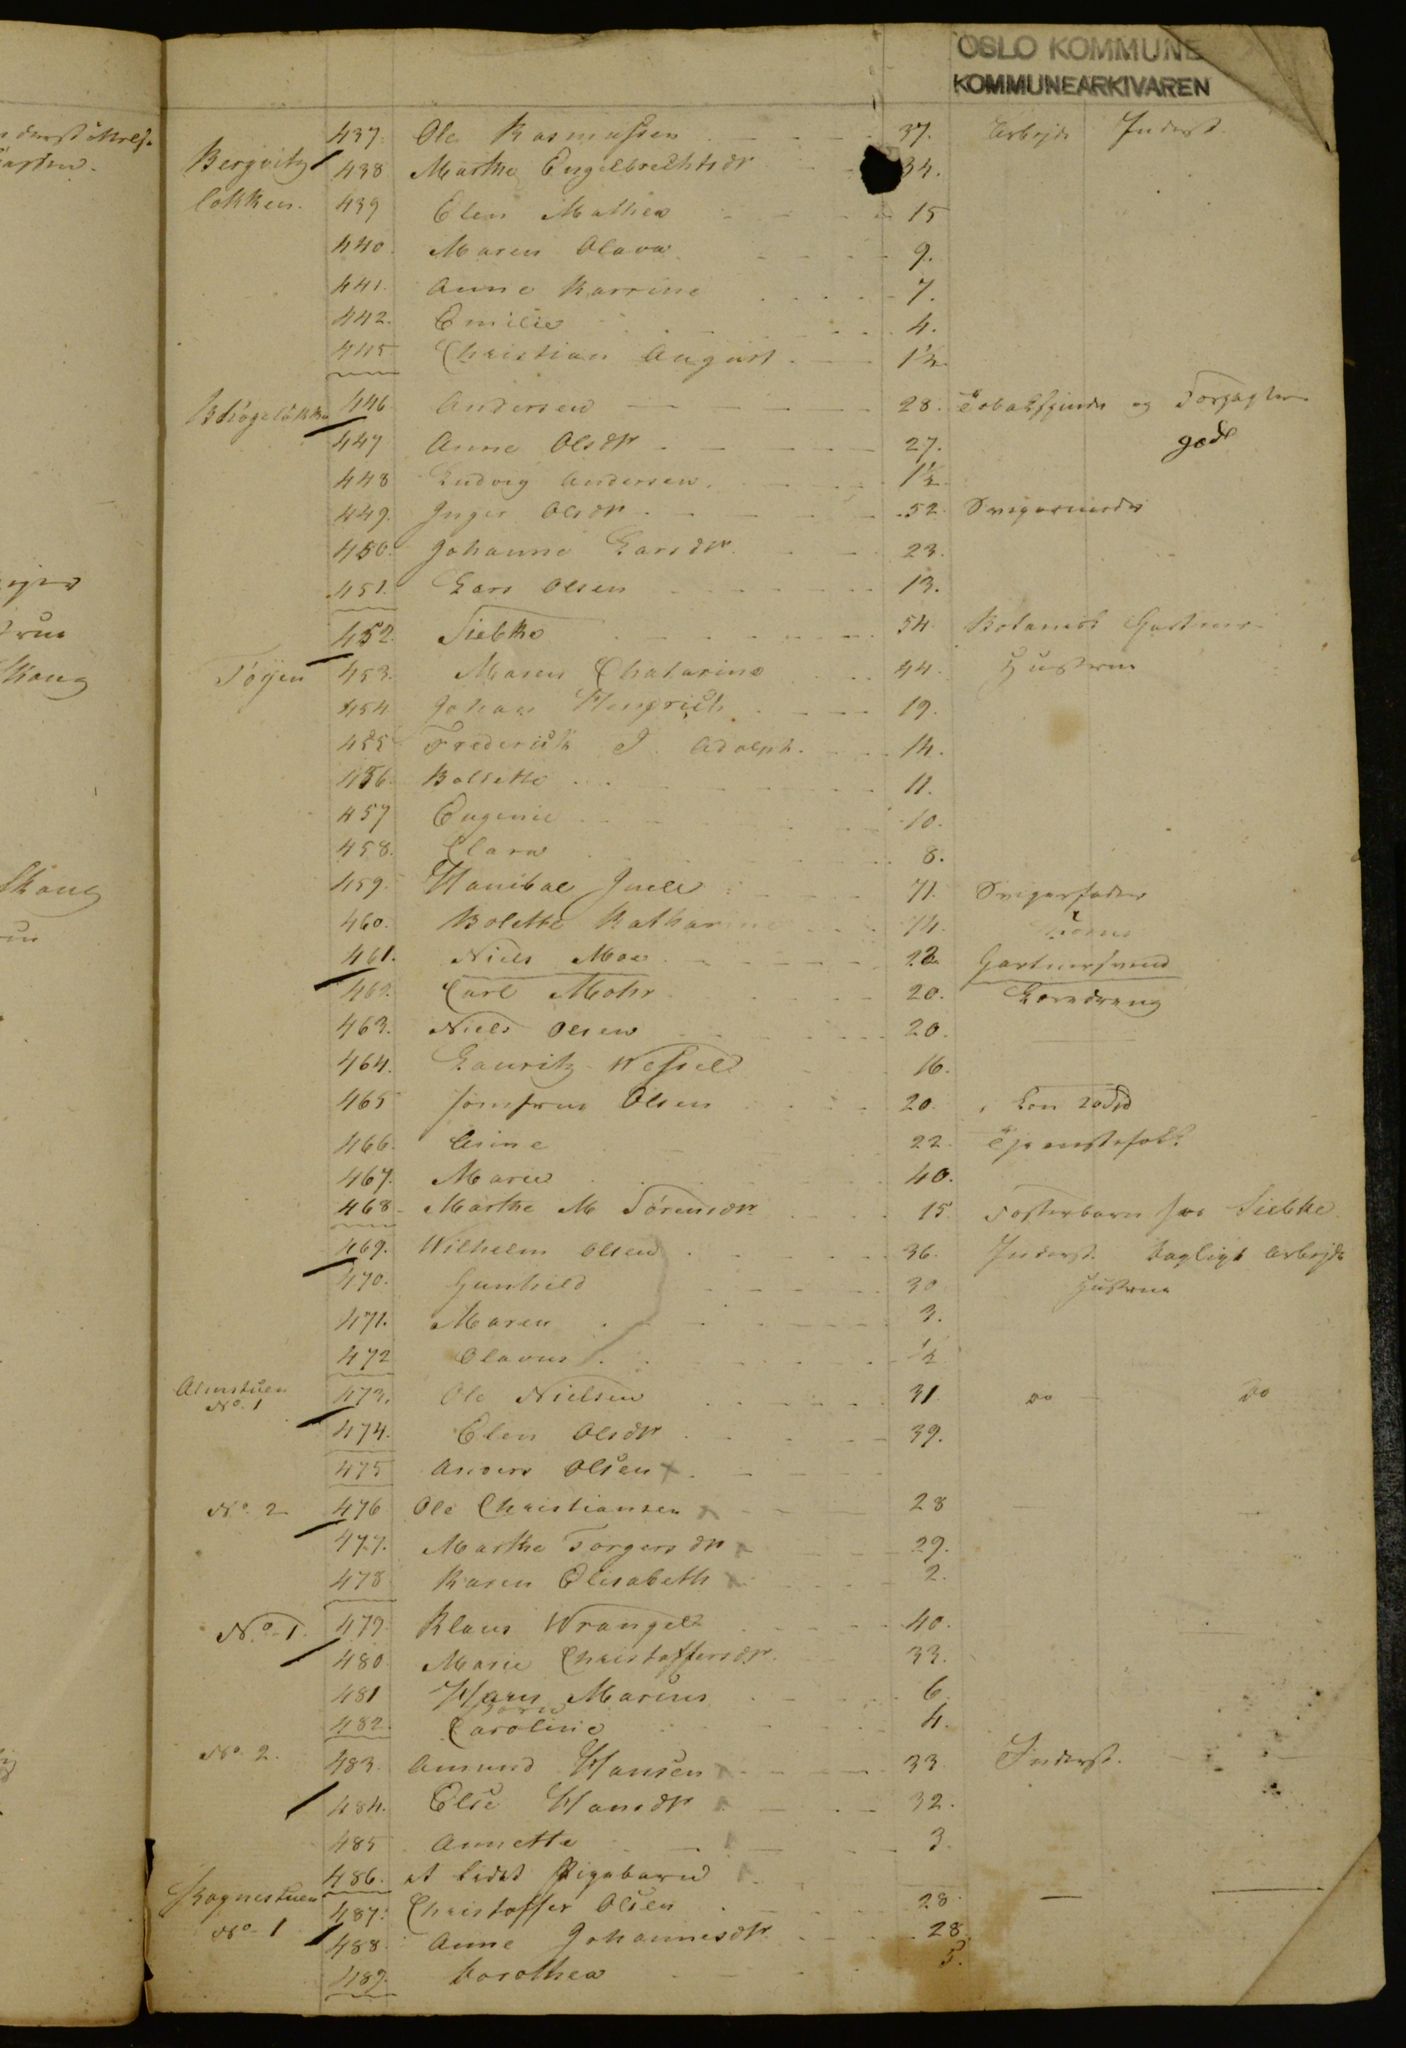 OSLO KOMMUNE
KOMMUNEARKIVAREN
437. Ole Rasmussen 37. Arbejds Inderst
Bergvitz 438 Marthe Engelbrechtsdr 34.
løkken. 439 Elen Mathea 15
440. Maren Olava 9.
441. Anne Karrine 7.
442. Emilie 4.
445 Christian August 1½.
446 Andersen 28. Tobaksspinder og
447 Anne Olsdr 27. god
448 Ludvig Andersen. 1½
449. Inger Olsdr 52 Svigermoder
450. Johanne Larsdr 23.
451. Lars Olsen 13.
452. Siebke 54. Botanisk Gartner
Töyen 453. Maren Chatarine 44. Hustrue
454 Johan Henrich 19.
455 Frederich J. Adolph. 14.
456. Bolette 11.
457 Eugenie 10.
458. Clara 8.
459. Hanibal Juell 71. Svigerfader
460. Bolette Katharine 74.
461. Niels Moe 22 Gartnersvend
462. Carl Mohr 20. Læredreng
463. Niels Olsen 20.
464. Lauritz Wessel 16.
465 Jomfrue Olsen 20. Løn 20 Spd
466. Oline 22 Tjenestefolk
467. Marie 40.
468 Marthe M Sörensdr 15 Fosterbarn hos Siebke
469. Wilhelm Olsen 36. Inderst. Dagligt Arbejde
470. Gunhild 30 Hustrue
471. Maren 3.
472 Olavus ½
Almstuen
No. 1 473. Ole Nielsen 31 do do
474. Elen Olsdr 39.
475 Anders Olsen x
No. 2 476 Ole Christiansen 28
477. Marthe Torgersdr 29.
478 Karen Elisabeth 2.
No. 1. 479. Klaus Wrangel 40.
480. Marie Christoffersdr. 33.
481 Hans Marius 6
482. Caroline 4.
No. 2. 483. Amund Hansen 33 Inderst.
484. Else Hansdr 32.
485 Annette 3.
486. et Pigebarn
Kragnestuen 487. Christoffer Olsen 28.
No. 1 488. Anne Johannesdr. 28.
489. Dorothea 5.